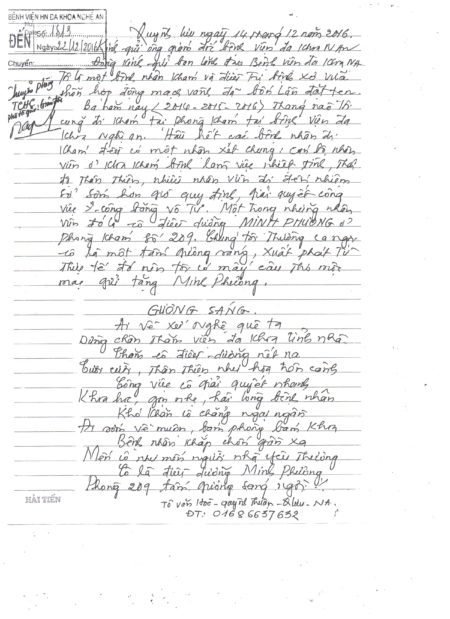 BỆNH VIỆN HN ĐA KHOA NGHỆ AN
ĐẾN
Số: 1813
Ngày: 22/12/2016
Chuyển:
Quỳnh lưu ngày 14 tháng 12 năm 2016.
Kính gửi ông giám đốc bệnh viện đa khoa N.An
Đồng kính gửi ban lãnh đạo Bệnh viện đa khoa N.A
Tôi là một bệnh nhân khám và điều trị bệnh xơ vữa
động mạch vành đã bốn lần đặt ten.
Ba năm nay (2014-2015-2016) tháng nào tôi
cũng đi khám tại phòng khám tại bệnh viện đa
khoa Nghệ an. Hầu hết các bệnh nhân đi
khám đều có một nhận xét chung: cán bộ nhân
viên ở khoa khám bệnh làm việc nhiệt tình, thái
độ thân thiện, nhiều nhân viên đi đến nhiệm
sở sớm hơn giờ quy định, giải quyết công
việc công bằng vô tư. Một trong những nhân
viên đó là cô điều dưỡng MINH PHƯƠNG ở
phòng khám số 209. Chúng tôi thường ca ngợi
cô là một tấm gương sáng, xuất phát từ
thực tế đó nên tôi có mấy câu thơ mộc
mạc gửi tặng Minh Phương.
GƯƠNG SÁNG.
Ai về xứ nghệ quê ta
Dừng chân thăm viện đa khoa tỉnh nhà
Thăm cô điều dưỡng nết na
Tươi cười, thân thiện như hoa trên cành
Công việc cô giải quyết nhanh
Khoa học, gọn nhẹ, hài lòng bệnh nhân
Khó khăn cô chẳng ngại ngần
Đi sớm về muộn, bám phòng bám khoa
Bệnh nhân khắp chốn gần xa
Mến cô như mến người nhà yêu thương
Cô là điều dưỡng Minh Phương
Phòng 209 tấm gương sáng ngời!
HẢI TIẾN
Tô văn Hoè - quỳnh Thuận - Q.lưu - NA.
ĐT: 01686637632